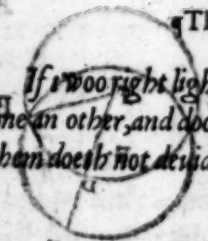 ¶Th
If twoo right ligh
ne an other, and doo
hem doeth not deuid